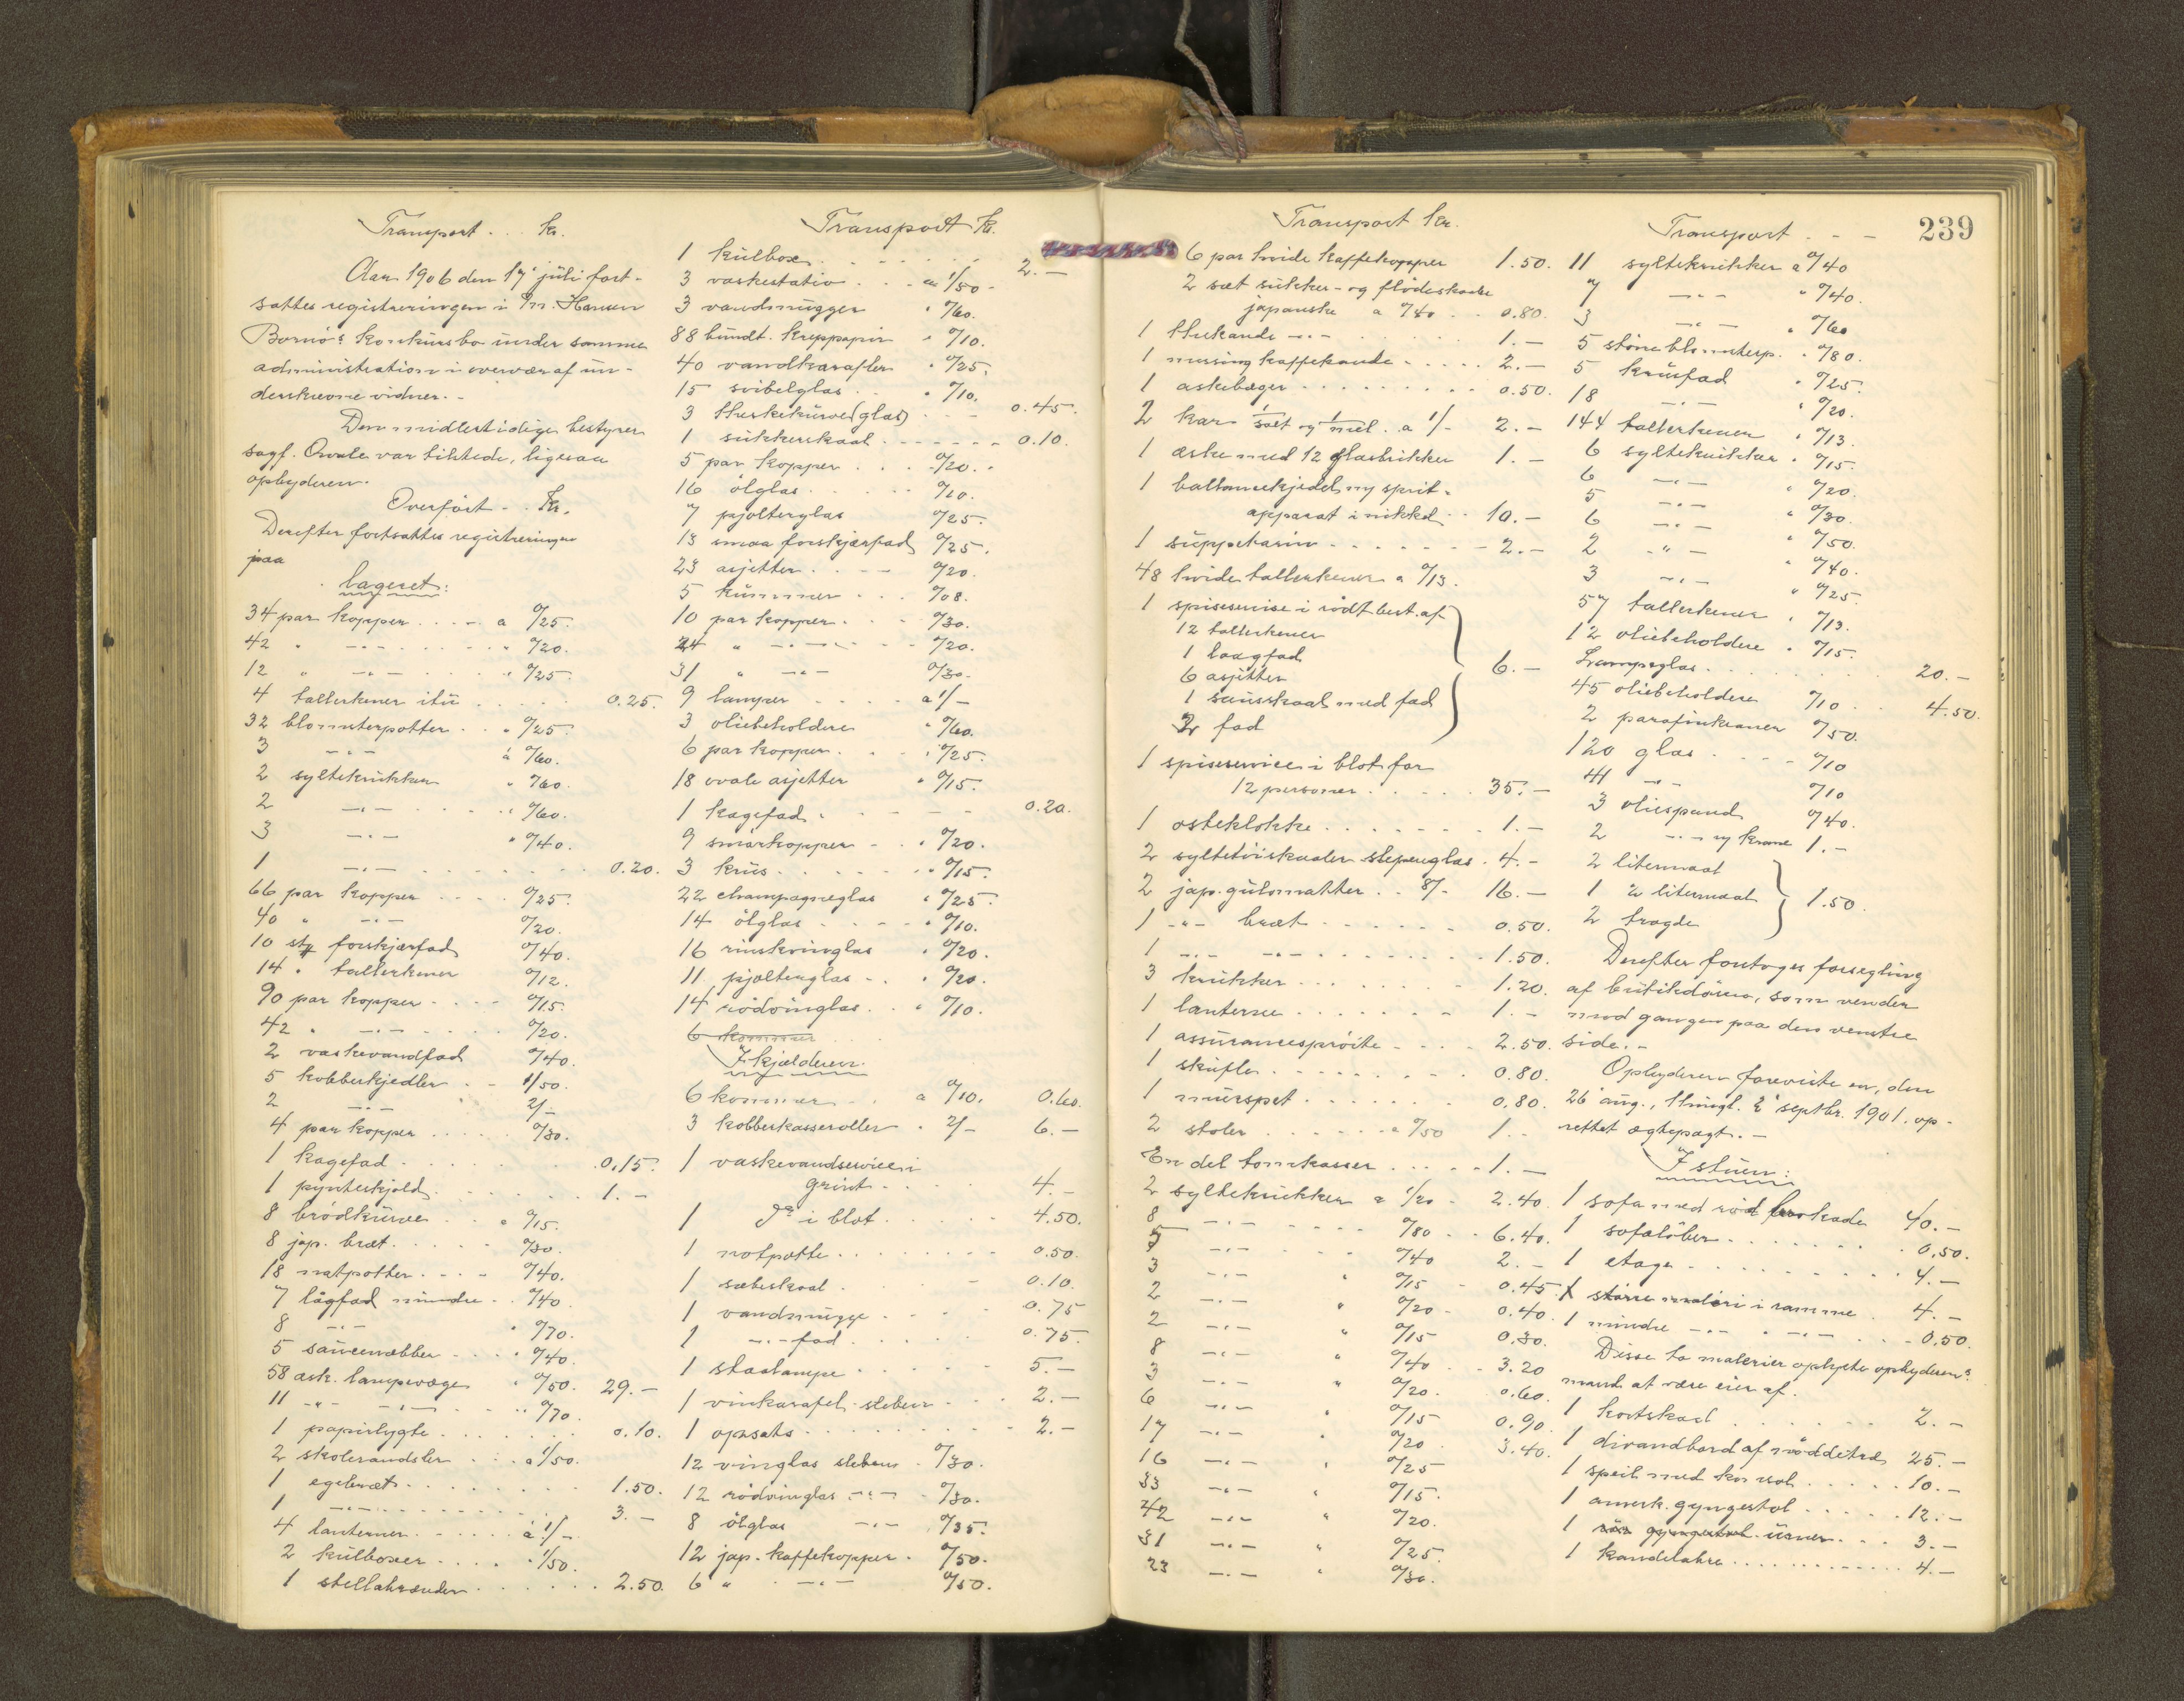 Transport . . . Kr.
Aar 1906 den 17' juli fort-
sattes registreringen i Fru. Hansen
Bornø's konkursbo under samme
administration i overvær af un-
derskrevne vidner. -
Den midlertidige bestyrer
sagf. Qvale var tilstede, ligesaa
opbyderen.
Overført - . Kr.
Derefter fortsattes registreringen
paa
lageret:
34 par kopper . . . - a 0/25.
42 " -"- . . . . . " 0/20.
12 " -"- . . . . " 0/25.
4 tallerkener itu . . . . . 0.25.
32 blomsterpotter . . " 0/25.
3 -"- á 0/60.
2 syltekrukker " 0/60.
2 -"- . . . " 0/60.
3 -"- " 0/40.
1 -"- . . . . . . . 0.20.
66 par kopper . . . . 0/25.
40 " -"- 0/20.
10 stk forskjærfad 0/40.
14 " tallerkener 0/12.
90 par kopper . . . . 0/15.
42 " -"- . . . . 0/20.
2 vaskevandfad 0/40.
5 kobberkjedler . - 1/50.
2 -"- 2/-
4 par kopper . . . . 0/30.
1 kagefad . . . . . . . 0.15.
1 pynteskjold . . . . . . 1. -
8 brødkurve . . . " 0/15.
8 jap. bræt . . . . . 0/30.
18 natpotter . . . - 0/40.
7 lågfad mindre . . 0/40.
8 -"- " 0/70.
5 saucenæbber . . . " 0/40.
58 æsk. lampevæge " 0/50. 29. -
11 -"- -"- . . " 0/70.
1 papirlygte . . . . . . . 0.10.
2 skolerandsler . . . a 1/50.
1 egebræt . . . . . . . . 1.50.
1 -"- . . . . . . . . . 3. -
4 lanterner . . . . . á 1/-
2 kulboxer . . . . . 1/50.
1 stellahrænder . . . . . . 2.50.
Transport Kr.
1 kulbox . . . . . . . . 2. -
3 vaskestativ . . . a 1/50 -
3 vandmugger " 0/60.
88 bundt. kreppapir " 0/10.
40 vandkarafler " 0/25.
15 svibelglas . . " 0/10.
3 thuskekurve (glas) . . - 0.45.
1 sukkerskaal . . . . . . 0.10.
5 par kopper . . . 0/20. .
16 ölglas . . . . . . 0/20.
7 pjolterglas 0/25.
13 smaa forskjærfad 0/25.
23 asjetter . . . - 0/20.
5 kummer . . . 0/08.
10 par kopper . . . 0/30.
24 " -"- . . . 0/20.
31 " -"- 0/30.
9 lamper . . . . . a 1/-
3 oliebeholdere " 0/60.
6 par kopper . . . . " 0/25.
18 ovale asjetter " 0/15.
1 kagefad . . . . . - 0.20.
9 smörkopper . - . " 0/20.
3 krus . . . . . . . " 0/15.
22 champagneglas " 0/25.
14 ölglas . . . . - " 0/10.
16 rinskvinglas " 0/20.
11 pjolterglas . . " 0/20.
14 rödvinglas . . " 0/10.
6 kommer
I kjælderen.
6 kommer . . . a 0/10. 0.60.
3 kobberkasseroller . 2/- 6. -
1 vaskevandservice i
grönt . . . . 4. -
1 do i blot . . . . . . 4.50.
1 notpotte . . . . . . . . 0.50.
1 sæbeskaal . . . . - 0.10.
1 vandmugge . . . - - 0.75
1 -"- fad . . . . . . 0.75.
1 staalampe . . . . . - 5. -
1 vinkarafel sleben . . . 2. -
1 opsats . . . . . . . . . 2. -
12 vinglas slebne . 0/30.
12 rødvinglas -"- 0/30.
8 ölglas -"- 0/35.
12 jap. kaffekopper . 0/50.
6 " -"- 0/50.
Transport Kr.
6 par hvide kaffekopper 1.50.
2 sæt sukker- og flødeskaale
japanske a 0/40 . . 0.80.
1 thekande -"- . . . . . . 1. -
1 messing kaffekande . . . . 2. -
1 askebæger . . . . . . . . . 0.50.
2 kar 1/salt og 1/mel . a 1/- 2. -
1 æske med 12 glasbrikker 1. -
1 ballancekjedel ny sprit-
apparat i nikkel . . 10. -
1 suppeterin . . . . . . . - 2. -
48 hvide tallerkener a 0/13.
1 spiseservise i rødt best. af
12 tallerkener
1 laagfad
6 asjetter 6. -
1 sausskaal med fad
2 fad
1 spiseservice i blot for
12 personer . . . . . 35. -
1 osteklokke . . . . . . . 1. -
2 syltetöiskaaler slepenglas . 4. -
2 jap. gulvmatter . . 8/- 16. -
1 -"- bræt . . . . . . 0.50.
1 -"- -"- . . . . . . . . 1.50.
3 krukker . . . . . . . . 1.20.
1 lanterne . . . . . . . 1. -
1 assurancesprøite . . . . 2.50.
1 skuffe . . . . . . . . . 0.80.
1 murspet . . . . . . . . 0.80.
2 stoler . . . . . . a 0/50 1. .
En del tomkasser . . . . . 1. -
2 syltekrukker a 1/20 - 2.40.
8 -"- . . . . . 0/80 . . 6.40.
5 -"- . . . 0/40 2. -
3 -"- " 0/15 - 0.45.
2 -"- " 0/20 - 0.40.
2 -"- " 0/15 0.30.
8 -"- " 0/40 . . 3.20
3 -"- " 0/20. 0.60.
6 -"- " 0/15 0.90.
17 -"- " 0/20 . 3.40.
16 -"- " 0/25
33 -"- " 0/15.
42 -"- " 0/20.
31 -"- " 0/25.
23 -"- " 0/30.
Transport . - - 239
11 syltekrukker a 0/40
7 -"- " 0/40.
3 -"- " 0/60
5 större blomsterp. " 0/80.
5 krusfad " 0/25.
18 -"- " 0/20.
144 tallerkener " 0/13.
6 syltekrukker . 0/15.
6 -"- " 0/20.
5 -"- " 0/30.
6 -"- " 0/50.
2 -"- " 0/40.
3 -"- " 0/25.
57 tallerkener " 0/13.
12 oliebeholdere " 0/15.
Lampeglas . . . . . . . . 20. -
45 oliebeholdere 0/10 . . 4.50.
2 parafinkraner 0/50.
120 glas . . . - 0/10
41 -"- 0/10
3 oliespand 0/40.
2 -"- ny krane 1. -
2 litermaal
1 ½ litermaal 1.50.
2 tragde
Derefter foretoges forsegling
af butikdøren, som vender
mod gangen paa den venstre
side. -
Opbyderen foreviste en, den
26' aug., thingl. 2' septbr. 1901. op-
rettet ægtepagt. -
I stuen:
1 sofa med rød brokade 40. -
1 sofalöber . . . . . . . 0.50.
1 etage . . . . . . . . . 4. -
1 större maleri i ramme . 4. -
1 mindre -"- -"- . . . 0.50.
Disse to malerier oplyste opbyderens
mand at være eier af.
1 kortskaal . . . . . . . 2. -
1 divandbord af nöddetræ 25. -
1 speil med konsol . . . . . 10. -
1 amerk. gyngestol . . . . . 12. -
1 rør gyngestol . . . . 3. -
1 kandelabre . . . . . . . . . 4. -